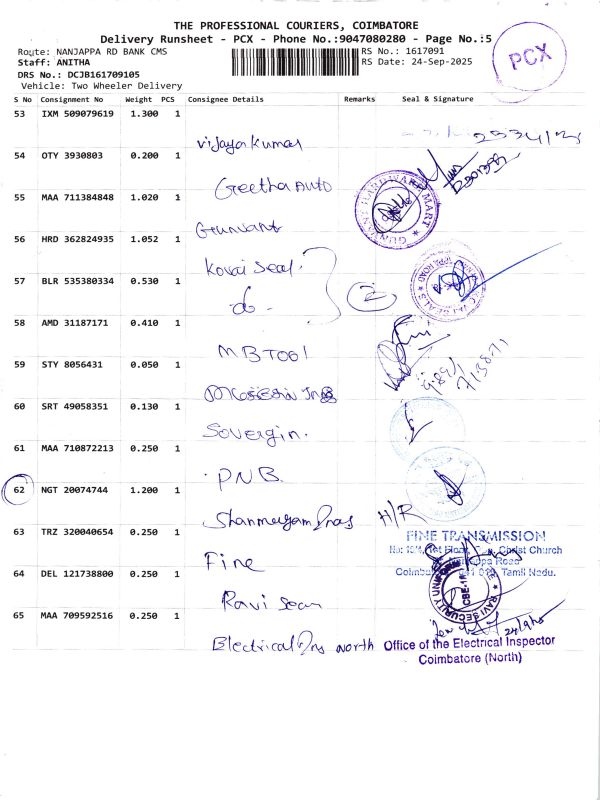 THE PROFESSIONAL COURIERS, COIMBATORE
Delivery Runsheet - PCX - Phone No.:9047080280 - Page No.:5
PCX
Route: NANJAPPA RD BANK CMS
RS No.: 1617091
Staff: ANITHA
RS Date: 24-Sep-2025
DRS No.: DCJB161709105
Vehicle: Two Wheeler Delivery
S No Consignment No Weight PCS Consignee Details Remarks Seal & Signature
53 IXM 509079619 1.300 1
vijayakumar
54 OTY 3930803 0.200 1
Geetha Auto
55 MAA 711384848 1.020 1
HARDWARE MART
56 HRD 362824935 1.052 1
Kovai Seal.
57 BLR 535380334 0.530 1
do.
2
58 AMD 31187171 0.410 1
MBTool
59 STY 8056431 0.050 1
60 SRT 49058351 0.130 1
Sovergin.
61 MAA 710872213 0.250 1
PNB
62 NGT 20074744 1.200 1
H/R
63 TRZ 320040654 0.250 1
FINE TRANSMISSION
Christ Church
Fine
Road
64 DEL 121738800 0.250 1
Tamil Nadu.
RAVI SECURITY UNIFORM
Ravi
65 MAA 709592516 0.250 1
Electrical Ins north
Office of the Electrical Inspector
Coimbatore (North)